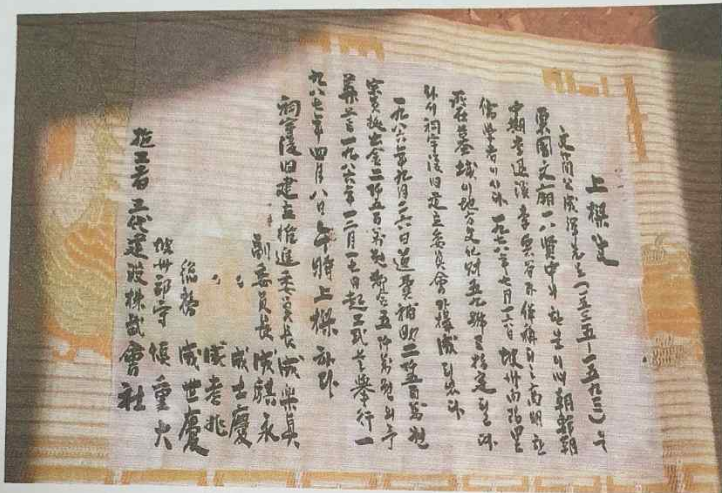 上樑文
文簡公 成渾先生(一五三五-一五九三)는
東國文廟 八賢中의 한분이며 朝鮮朝
中期 李退溪 李栗谷과 併稱되는 高明한
儒學者이시다 一九七六年七月二六日 坡州 向陽里
所在 墓域이 地方文化財 五九號로 指定되고
祠宇復旧建立委員會 構成되
一九八六年九月二六日 道費補助 二阡五百萬원
宗員據出金 二阡五百萬원 都合 五阡萬원의 予
算으로 一九八六年一二月一七日 起工式을 擧行 一
九八七年四月八日 午時 上樑하다
祠宇復旧建立推進委員長 成樂眞
副委員長 成騏永
〃 成士慶
〃 成耆兆
總務 成世慶
坡州郡守 愼重大
施工者 三代建設株式會社